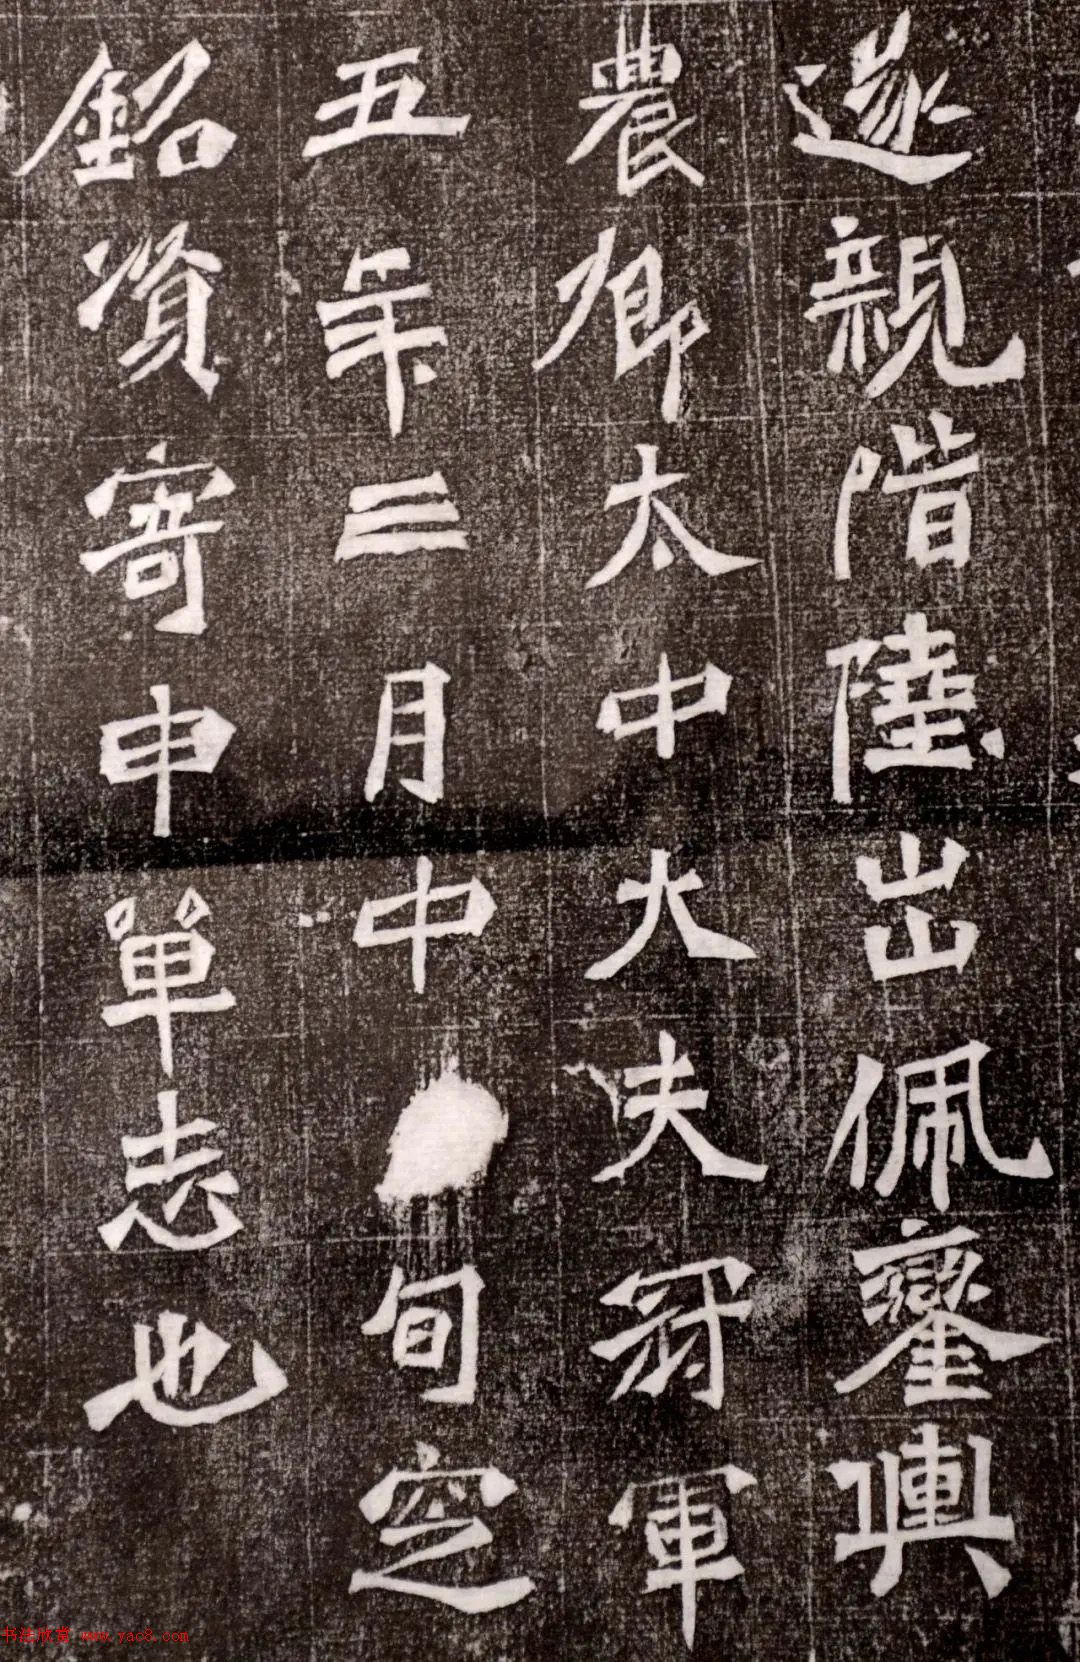 遂親階陛出佩鑾輿
農卿太中大夫冠軍
五年三月中旬窆
銘資寄申單志也
书法欣赏 www.yac8.com